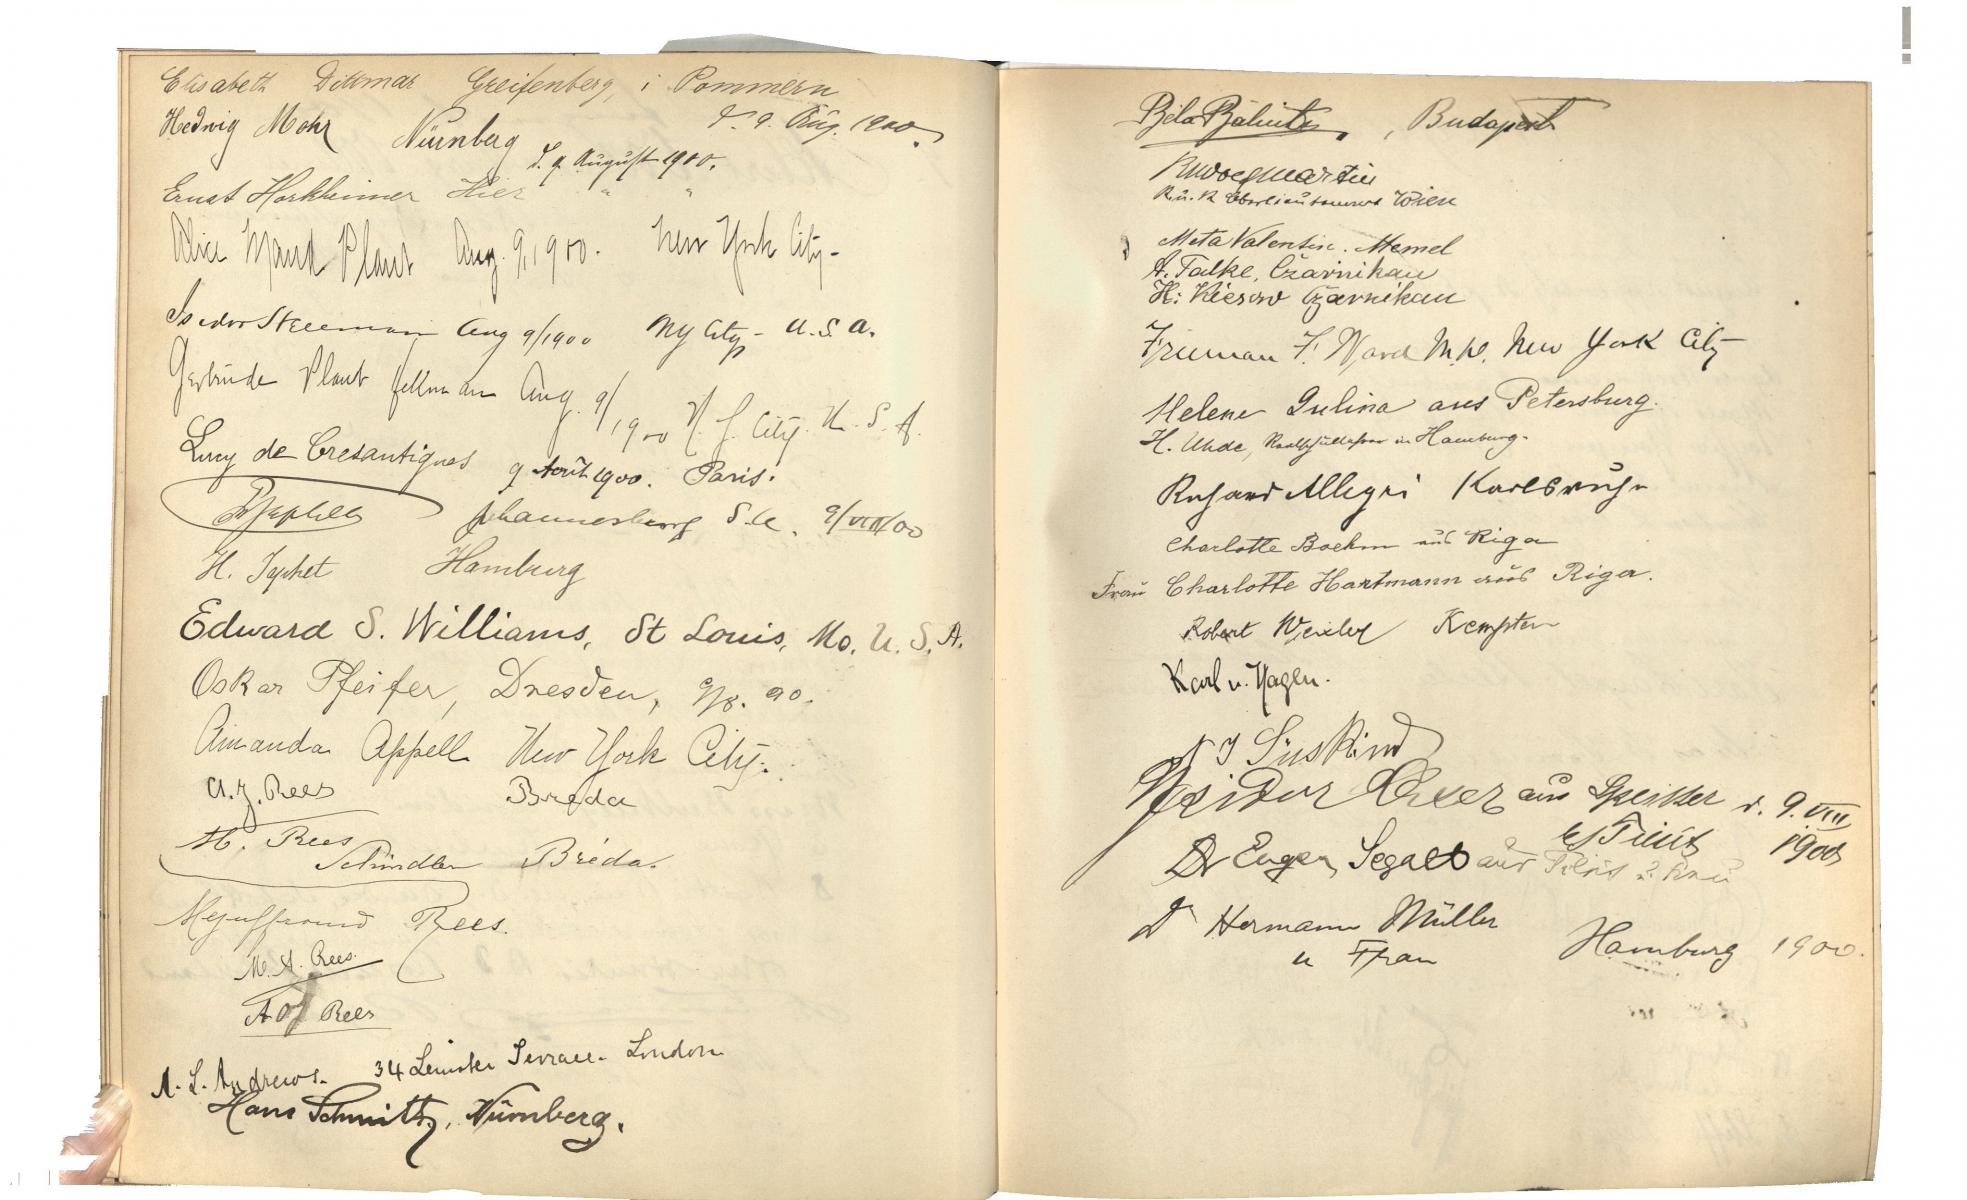 Elisabeth Dittmar Greifenberg, i Pommern
d. 9. Aug. 1900.
Hedwig Mohr Nürnberg
d. 9. August 1900.
Ernst Horkheimer Hier " "
Alice Maud Plaut Aug. 9, 1900. New York City-
Isidor Aug 9/1900 NY City - U.S.A.
Gertrude Plaut Aug. 9/1900 N.Y. City. U.S.A.
Lucy de 9 Août 1900. Paris.
Johannesburg S.A. 9/VIII/00
H. Hamburg
Edward S. Williams, St Louis, Mo. U.S.A.
Oskar Pfeifer, Dresden, 9/8. 90.
Amanda Appell New York City.
A. J. Rees Breda
M. Rees
Schindler Breda.
Rees.
M. A. Rees.
Rees
A. L. Andrews. 34 Leinster Terrace. London
Hans Schmitt, Nürnberg.
Bela Bálint, Budapest
Wien
Meta Valentin. Memel
A. Falke, Czarnikau
H. Kiesow Czarnikau
Freeman F. Ward M.D. New York City
Helene Gulina aus Petersburg.
H. Uhde, in Hamburg.
Richard Allegri Karlsruhe
Charlotte Boehm aus Riga
Frau Charlotte Hartmann aus Riga.
Robert Kempten
Karl v. Hagen.
Süskind
Isidor aus d. 9. VIII
1900
Dr Eugen aus
Dr Hermann Müller
u Frau Hamburg 1900.